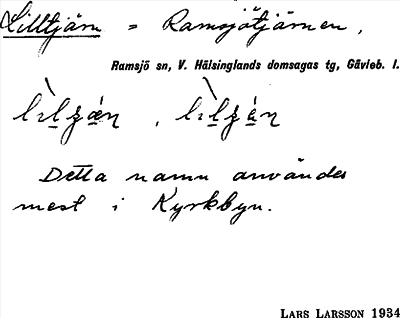 Lilltjärn = Ramsjötjärnen,
Ramsjö sn, V. Hälsinglands domsagas tg, Gävleb. l.
Detta namn användes
mest i Kyrkbyn.
LARS LARSSON 1934